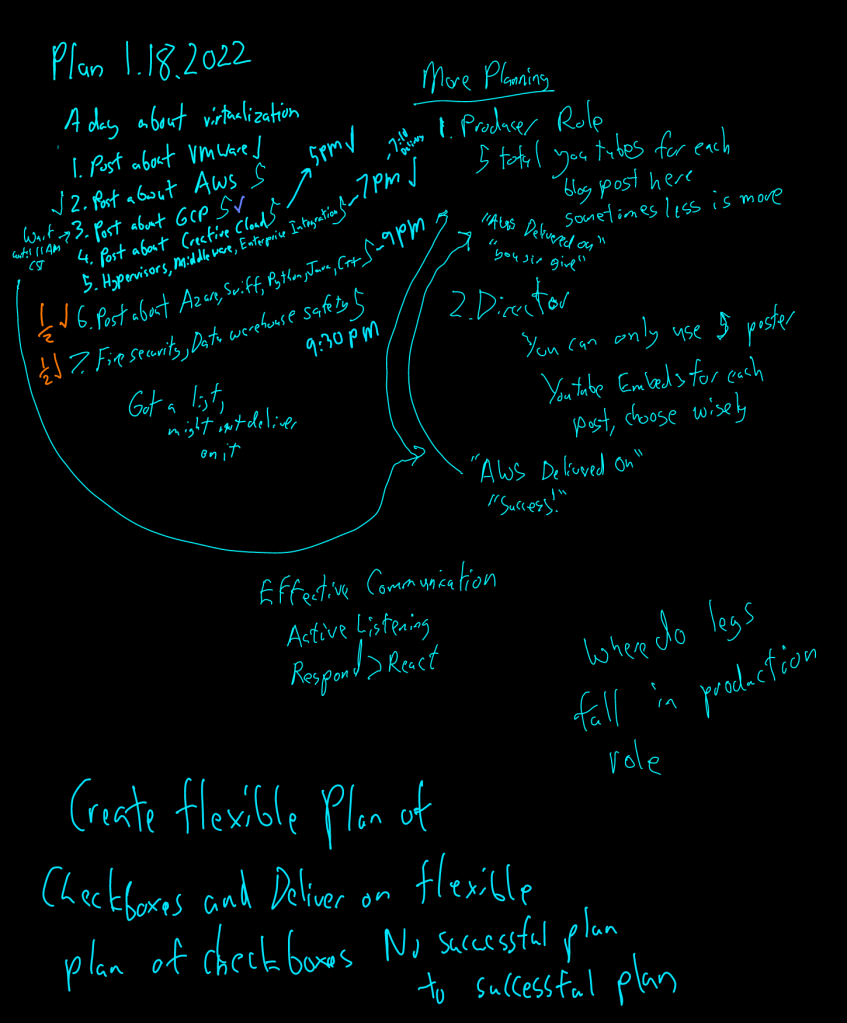 Plan 1.18.2022
A day about virtualization
1. Post about VMware
2. Post about AWS 5
Wait
until 11 AM
CST
3. Post about GCP 5
4. Post about Creative Cloud 5
5pm
5. Hypervisors, Middleware, Enterprise Integration 5
7pm
1/2 6. Post about Azure, Swift, Python, Java, C++ 5
-9pm
1/2 7. Fire security, Data warehouse safety 5
9:30pm
Got a list,
might not deliver
on it
More Planning
1. Producer Role
5 total youtubes for each
blog post here
sometimes less is more
"AWS Delivered on"
"you sir give"
2. Director
You can only use 5 poster
Youtube Embeds for each
post, choose wisely
"AWS Delivered On"
"Success!"
Effective Communication
Active Listening
Respond > React
Where do legs
fall in production
role
Create flexible Plan of
Checkboxes and Deliver on flexible
plan of checkboxes No successful plan
to successful plan